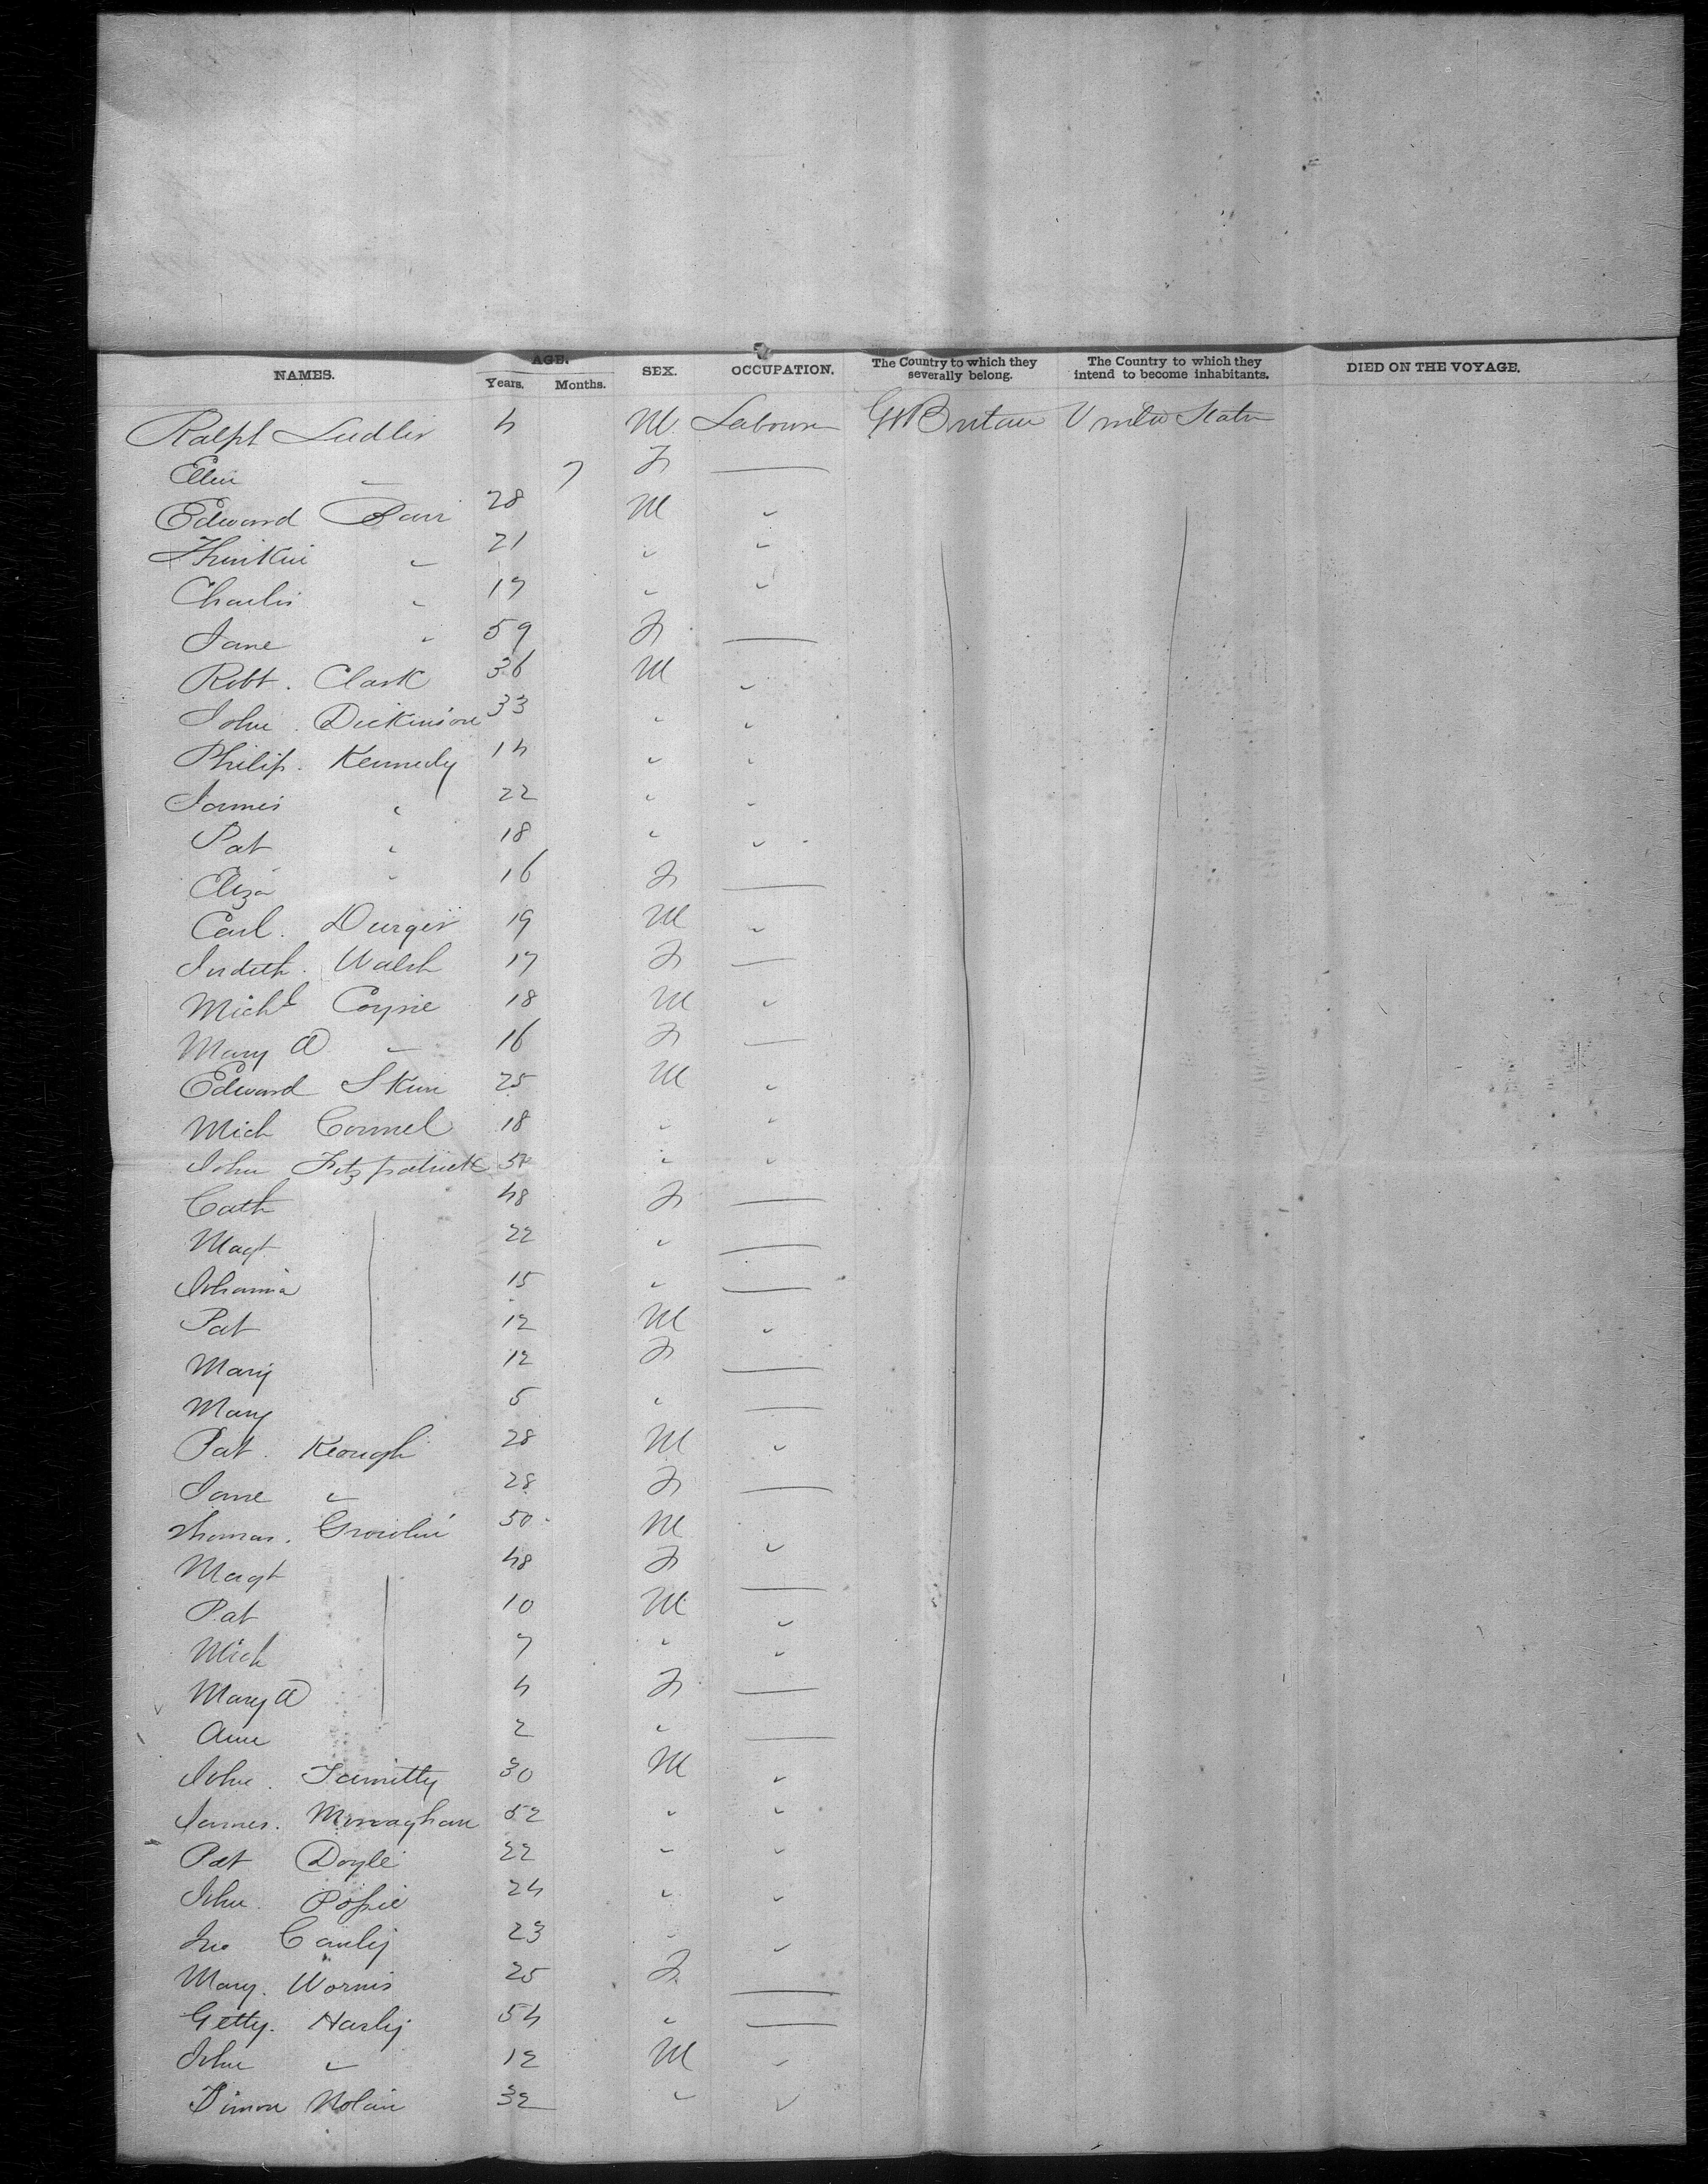 NAMES. AGE. Years. Months. SEX. OCCUPATION. The Country to which they severally belong. The Country to which they intend to become inhabitants. DIED ON THE VOYAGE.
Ralph 4 M Labourer Gt Britain United States
Ellen " 7 F —
Edward 28 M "
21 " "
Charles " 17 " "
Jane " 59 F —
Robt. Clark 36 M "
John. Dickinson 33 " "
Philip. Kennedy 14 " "
James " 22 " "
Pat " 18 " "
Eliza " 16 F —
Carl. 19 M "
Judith. Walsh 17 F —
Michl Coyne 18 M "
Mary A " 16 F —
Edward 25 M "
Mich Connel 18 " "
John Fitzpatrick " "
Cath 48 F —
Magt 22 " —
Johanna 15 " —
Pat 12 M "
Mary 12 F —
Mary 5 " —
Pat. Keough 28 M "
Jane " 28 F —
Thomas. 50 M "
Magt 48 F —
Pat 10 M "
Mich 7 " "
Mary A 4 F —
Ann 2 " —
John. 30 M "
James. Monaghan 52 " "
Pat Doyle 22 " "
John. 24 " "
Jno 23 " "
Mary. 25 F —
Getty. 54 " —
John " 12 M "
Nolan 32 " "